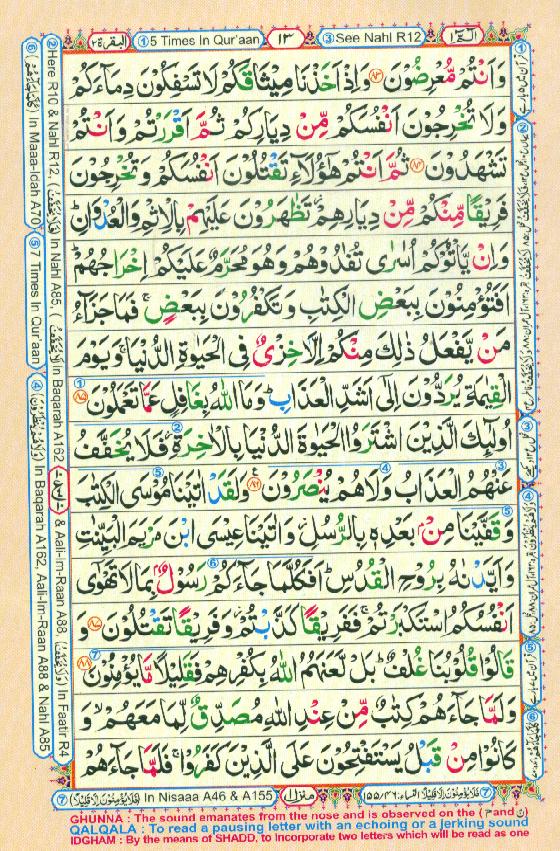 البقرة ٢ ① 5 Times In Qur'aan ١٣ ③ See Nahl R12 الٓمّٓ ١
وَاَنْتُمْ مُّعْرِضُوْنَ ﴿۸۳﴾ وَاِذْ اَخَذْنَا مِيْثَاقَكُمْ لَا تَسْفِكُوْنَ دِمَآءَكُمْ
وَلَا تُخْرِجُوْنَ اَنْفُسَكُمْ مِّنْ دِيَارِكُمْ ثُمَّ اَقْرَرْتُمْ وَاَنْتُمْ
تَشْهَدُوْنَ ﴿۸۴﴾ ثُمَّ اَنْتُمْ هٰٓؤُلَآءِ تَقْتُلُوْنَ اَنْفُسَكُمْ وَتُخْرِجُوْنَ
فَرِيْقًا مِّنْكُمْ مِّنْ دِيَارِهِمْ تَظٰهَرُوْنَ عَلَيْهِمْ بِالْاِثْمِ وَالْعُدْوَانِ
وَاِنْ يَّاْتُوْكُمْ اُسٰرٰى تُفٰدُوْهُمْ وَهُوَ مُحَرَّمٌ عَلَيْكُمْ اِخْرَاجُهُمْ
اَفَتُؤْمِنُوْنَ بِبَعْضِ الْكِتٰبِ وَتَكْفُرُوْنَ بِبَعْضٍ ۚ فَمَا جَزَآءُ
مَنْ يَّفْعَلُ ذٰلِكَ مِنْكُمْ اِلَّا خِزْىٌ فِى الْحَيٰوةِ الدُّنْيَا ۚ وَيَوْمَ
الْقِيٰمَةِ يُرَدُّوْنَ اِلٰٓى اَشَدِّ الْعَذَابِ ؕ وَمَا اللّٰهُ بِغَافِلٍ عَمَّا تَعْمَلُوْنَ ① ﴿۸۵﴾
اُولٰٓئِكَ الَّذِيْنَ اشْتَرَوُا الْحَيٰوةَ الدُّنْيَا بِالْاٰخِرَةِ ② فَلَا يُخَفَّفُ
③ عَنْهُمُ الْعَذَابُ وَلَا هُمْ يُنْصَرُوْنَ ④ ﴿۸۶﴾ وَلَقَدْ اٰتَيْنَا مُوْسَى الْكِتٰبَ ⑤
⑤ وَقَفَّيْنَا مِنْۢ بَعْدِهٖ بِالرُّسُلِ وَاٰتَيْنَا عِيْسَى ابْنَ مَرْيَمَ الْبَيِّنٰتِ
وَاَيَّدْنٰهُ بِرُوْحِ الْقُدُسِ ؕ اَفَكُلَّمَا جَآءَكُمْ رَسُوْلٌۢ ⑥ بِمَا لَا تَهْوٰٓى
اَنْفُسُكُمُ اسْتَكْبَرْتُمْ ۚ فَفَرِيْقًا كَذَّبْتُمْ وَفَرِيْقًا تَقْتُلُوْنَ ﴿۸۷﴾ وَ
قَالُوْا قُلُوْبُنَا غُلْفٌ ؕ بَلْ لَّعَنَهُمُ اللّٰهُ بِكُفْرِهِمْ فَقَلِيْلًا مَّا يُؤْمِنُوْنَ ⑦ ﴿۸۸﴾
وَلَمَّا جَآءَهُمْ كِتٰبٌ مِّنْ عِنْدِ اللّٰهِ مُصَدِّقٌ لِّمَا مَعَهُمْ ۙ وَ
كَانُوْا مِنْ قَبْلُ يَسْتَفْتِحُوْنَ عَلَى الَّذِيْنَ كَفَرُوْا ۚ فَلَمَّا جَآءَهُمْ
② Here R10 & Nahl R12, In Nahl A85, In Baqarah A162 & Aali-Im-Raan A88, In Faatir R4
⑥ In Maaa-Idah A70 ⑤ 7 Times In Qur'aan ④ (وَلَا هُمْ يُنْظَرُوْنَ) In Baqarah A162, Aali-Im-Raan A88 & Nahl A85
⑦ (فَلَا يُؤْمِنُوْنَ اِلَّا قَلِيْلًا) In Nisaaa A46 & A155 منزل ١ (فَلَا يُؤْمِنُوْنَ اِلَّا قَلِيْلًا) النساء: ٤٦ / ١٥٥ ⑦
GHUNNA : The sound emanates from the nose and is observed on the ( م and ن )
QALQALA : To read a pausing letter with an echoing or a jerking sound
IDGHAM : By the means of SHADD, to incorporate two letters which will be read as one